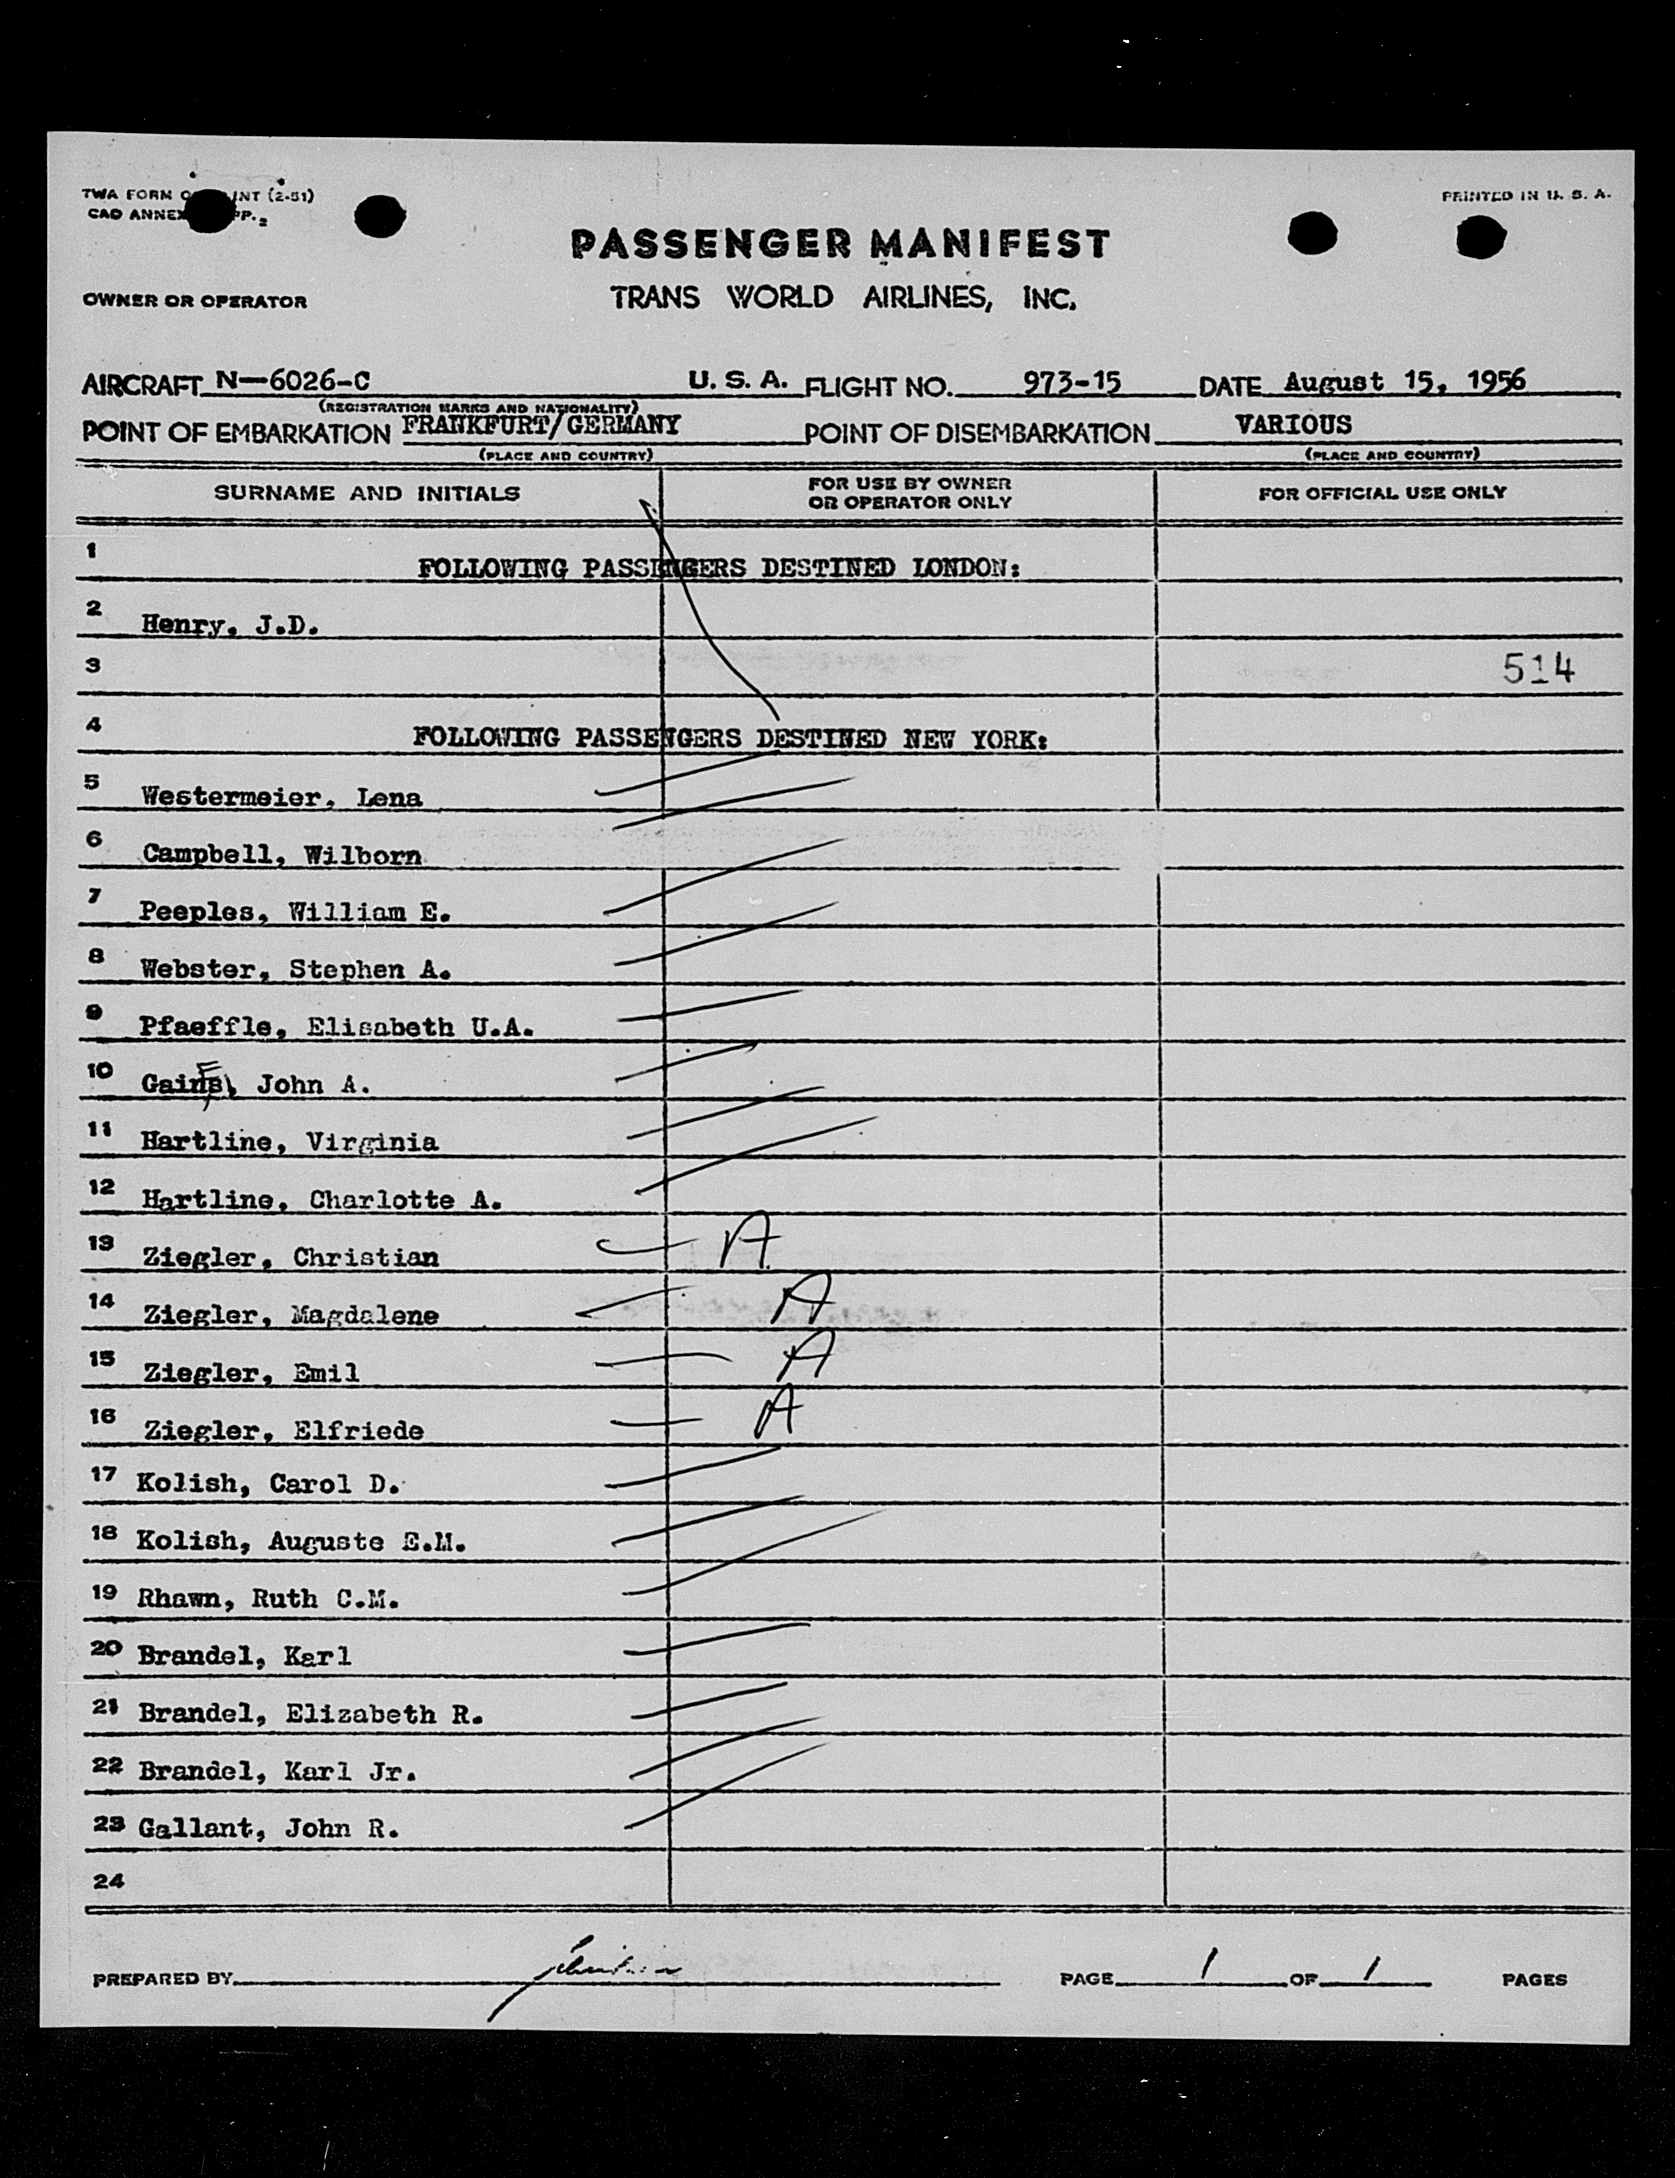 TWA FORM INT (2-51)
PRINTED IN U. S. A.
CAO ANNEX PP. 2
PASSENGER MANIFEST
OWNER OR OPERATOR
TRANS WORLD AIRLINES, INC.
AIRCRAFT N-6026-C U. S. A. FLIGHT NO. 973-15 DATE August 15, 1956
(REGISTRATION MARKS AND NATIONALITY)
POINT OF EMBARKATION FRANKFURT/GERMANY POINT OF DISEMBARKATION VARIOUS
(PLACE AND COUNTRY) (PLACE AND COUNTRY)
SURNAME AND INITIALS FOR USE BY OWNER OR OPERATOR ONLY FOR OFFICIAL USE ONLY
1 FOLLOWING PASSENGERS DESTINED LONDON:
2 Henry, J.D.
3 514
4 FOLLOWING PASSENGERS DESTINED NEW YORK:
5 Westermeier, Lena
6 Campbell, Wilborn
7 Peeples, William E.
8 Webster, Stephen A.
9 Pfaeffle, Elisabeth U.A.
10 John A.
11 Hartline, Virginia
12 Hartline, Charlotte A.
13 Ziegler, Christian A
14 Ziegler, Magdalene A
15 Ziegler, Emil A
16 Ziegler, Elfriede A
17 Kolish, Carol D.
18 Kolish, Auguste E.M.
19 Rhawn, Ruth C.M.
20 Brandel, Karl
21 Brandel, Elizabeth R.
22 Brandel, Karl Jr.
23 Gallant, John R.
24
PREPARED BY PAGE 1 OF 1 PAGES